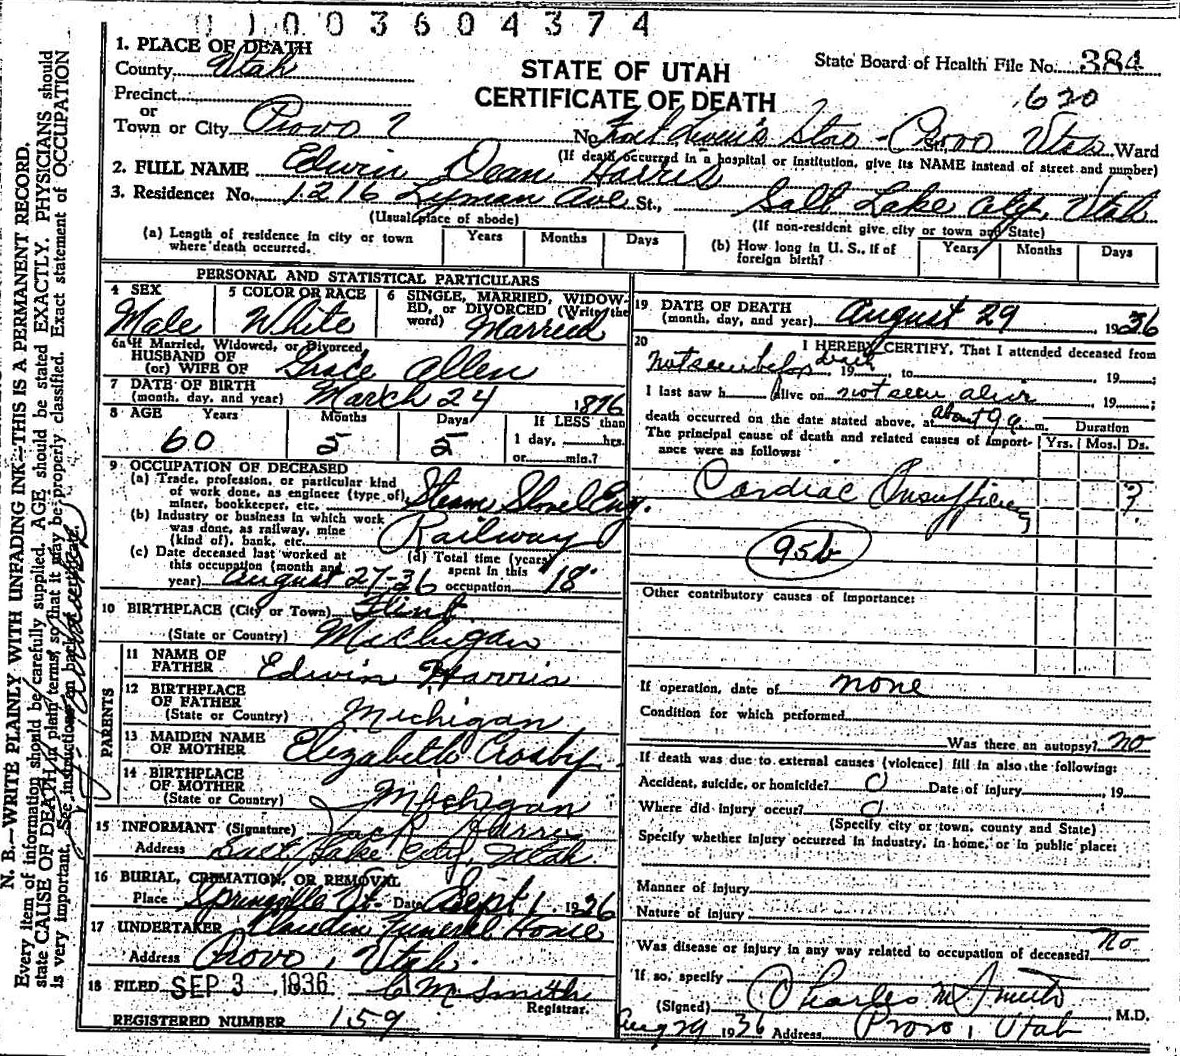 0 1 0 0 3 6 0 4 3 7 4
1. PLACE OF DEATH
County Utah
Precinct
or
Town or City Provo
STATE OF UTAH
CERTIFICATE OF DEATH
State Board of Health File No. 384
620
No. Provo Utah Ward
(If death occurred in a hospital or institution, give its NAME instead of street and number)
2. FULL NAME Edwin Dean Harris
3. Residence: No. 1216 Lyman Ave St., Salt Lake City, Utah
(Usual place of abode) (If non-resident give city or town and State)
(a) Length of residence in city or town where death occurred. Years Months Days
(b) How long in U. S., if of foreign birth? Years Months Days
PERSONAL AND STATISTICAL PARTICULARS
4 SEX Male
5 COLOR OR RACE White
6 SINGLE, MARRIED, WIDOWED, or DIVORCED (Write the word) Married
6a If Married, Widowed, or Divorced
HUSBAND OF
(or) WIFE OF Grace Allen
7 DATE OF BIRTH
(month, day, and year) March 24 1876
8 AGE Years Months Days If LESS than
60 5 5 1 day, hrs.
or min.?
9 OCCUPATION OF DECEASED
(a) Trade, profession, or particular kind
of work done, as engineer (type of),
miner, bookkeeper, etc. Steam Shovel Eng.
(b) Industry or business in which work
was done, as railway, mine
(kind of), bank, etc. Railway
(c) Date deceased last worked at
this occupation (month and
year) August 27-36
(d) Total time (years)
spent in this
occupation 18
10 BIRTHPLACE (City or Town) Flint
(State or Country) Michigan
PARENTS
11 NAME OF
FATHER Edwin Harris
12 BIRTHPLACE
OF FATHER
(State or Country) Michigan
13 MAIDEN NAME
OF MOTHER Elizabeth Crosby
14 BIRTHPLACE
OF MOTHER
(State or Country) Michigan
15 INFORMANT (Signature) Jack Harris
Address Salt Lake City, Utah
16 BURIAL, CREMATION, OR REMOVAL
Place Springville Ut. Date Sept 1 1936
17 UNDERTAKER Claudin Funeral Home
Address Provo, Utah.
18 FILED SEP 3, 1936 C M Smith
Registrar.
REGISTERED NUMBER 159
19 DATE OF DEATH
(month, day, and year) August 29 1936
20 I HEREBY CERTIFY, That I attended deceased from
not seen before death, 19 , to , 19 ;
I last saw h alive on not seen alive 19 ;
death occurred on the date stated above, at about 9 a m.
Duration
The principal cause of death and related causes of importance were as follows: Yrs. Mos. Ds.
Cardiac Insufficiency ?
95b
Other contributory causes of importance:
If operation, date of none
Condition for which performed
Was there an autopsy? no
If death was due to external causes (violence) fill in also the following:
Accident, suicide, or homicide? 0 Date of injury , 19
Where did injury occur? 0
(Specify city or town, county and State)
Specify whether injury occurred in industry, in home, or in public place:
Manner of injury
Nature of injury
Was disease or injury in any way related to occupation of deceased? No
If so, specify
(Signed) Charles M Smith M.D.
Aug 29 1936 Address Provo, Utah
N. B.—WRITE PLAINLY WITH UNFADING INK—THIS IS A PERMANENT RECORD.
Every item of information should be carefully supplied. AGE should be stated EXACTLY. PHYSICIANS should
state CAUSE OF DEATH in plain terms, so that it may be properly classified. Exact statement of OCCUPATION
is very important. See instructions on back of certificate.